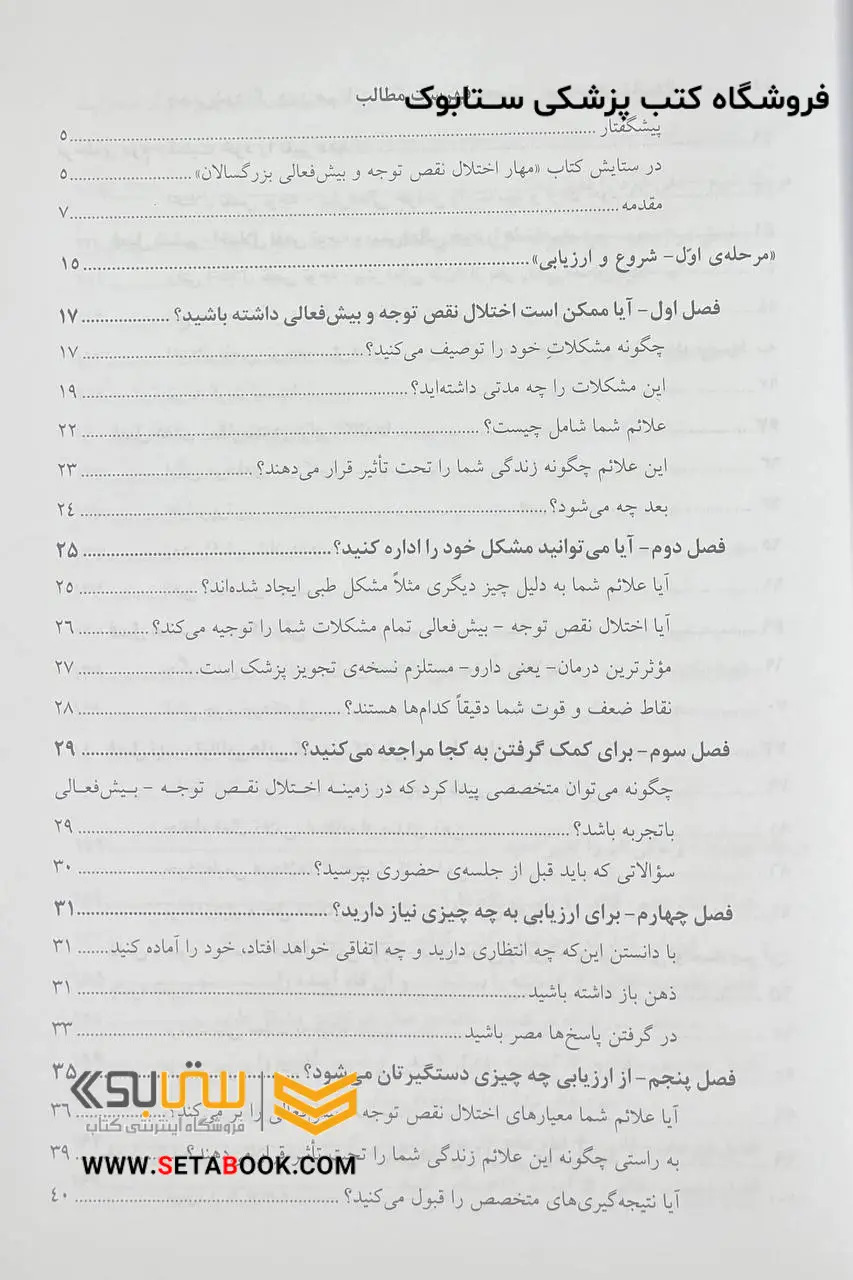 فروشگاه کتب پزشکی ستابوک
فهرست مطالب
پیشگفتار ..... ۵
در ستایش کتاب «مهار اختلال نقص توجه و بیش‌فعالی بزرگسالان» ..... ۵
مقدمه ..... ۷
«مرحله‌ی اوّل- شروع و ارزیابی» ..... ۱۵
فصل اول- آیا ممکن است اختلال نقص توجه و بیش‌فعالی داشته باشید؟ ..... ۱۷
چگونه مشکلاتِ خود را توصیف می‌کنید؟ ..... ۱۷
این مشکلات را چه مدتی داشته‌اید؟ ..... ۱۹
علائم شما شامل چیست؟ ..... ۲۲
این علائم چگونه زندگی شما را تحت تأثیر قرار می‌دهند؟ ..... ۲۳
بعد چه می‌شود؟ ..... ۲٤
فصل دوم- آیا می‌توانید مشکل خود را اداره کنید؟ ..... ۲۵
آیا علائم شما به دلیل چیز دیگری مثلاً مشکل طبی ایجاد شده‌اند؟ ..... ۲۵
آیا اختلال نقص توجه - بیش‌فعالی تمام مشکلات شما را توجیه می‌کند؟ ..... ۲٦
مؤثرترین درمان- یعنی دارو- مستلزم نسخه‌ی تجویز پزشک است. ..... ۲۷
نقاط ضعف و قوت شما دقیقاً کدام‌ها هستند؟ ..... ۲۸
فصل سوم- برای کمک گرفتن به کجا مراجعه می‌کنید؟ ..... ۲۹
چگونه می‌توان متخصصی پیدا کرد که در زمینه اختلال نقص توجه - بیش‌فعالی
باتجربه باشد؟ ..... ۲۹
سؤالاتی که باید قبل از جلسه‌ی حضوری بپرسید؟ ..... ۳۰
فصل چهارم- برای ارزیابی به چه چیزی نیاز دارید؟ ..... ۳۱
با دانستن این‌که چه انتظاری دارید و چه اتفاقی خواهد افتاد، خود را آماده کنید ..... ۳۱
ذهن باز داشته باشید ..... ۳۱
در گرفتن پاسخ‌ها مصر باشید ..... ۳۳
فصل پنجم- از ارزیابی چه چیزی دستگیرتان می‌شود؟ ..... ۳۵
آیا علائم شما معیارهای اختلال نقص توجه - بیش‌فعالی را پر می‌کند؟ ..... ۳٦
به راستی چگونه این علائم زندگی شما را تحت تأثیر قرار می‌دهند؟ ..... ۳۹
آیا نتیجه‌گیری‌های متخصص را قبول می‌کنید؟ ..... ٤۰
ستابوک
فروشگاه اینترنتی کتاب
WWW.SETABOOK.COM